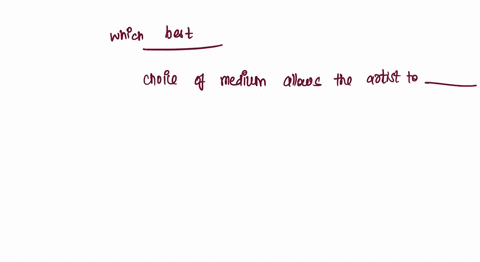 which best
choice of medium allows the artist to ______